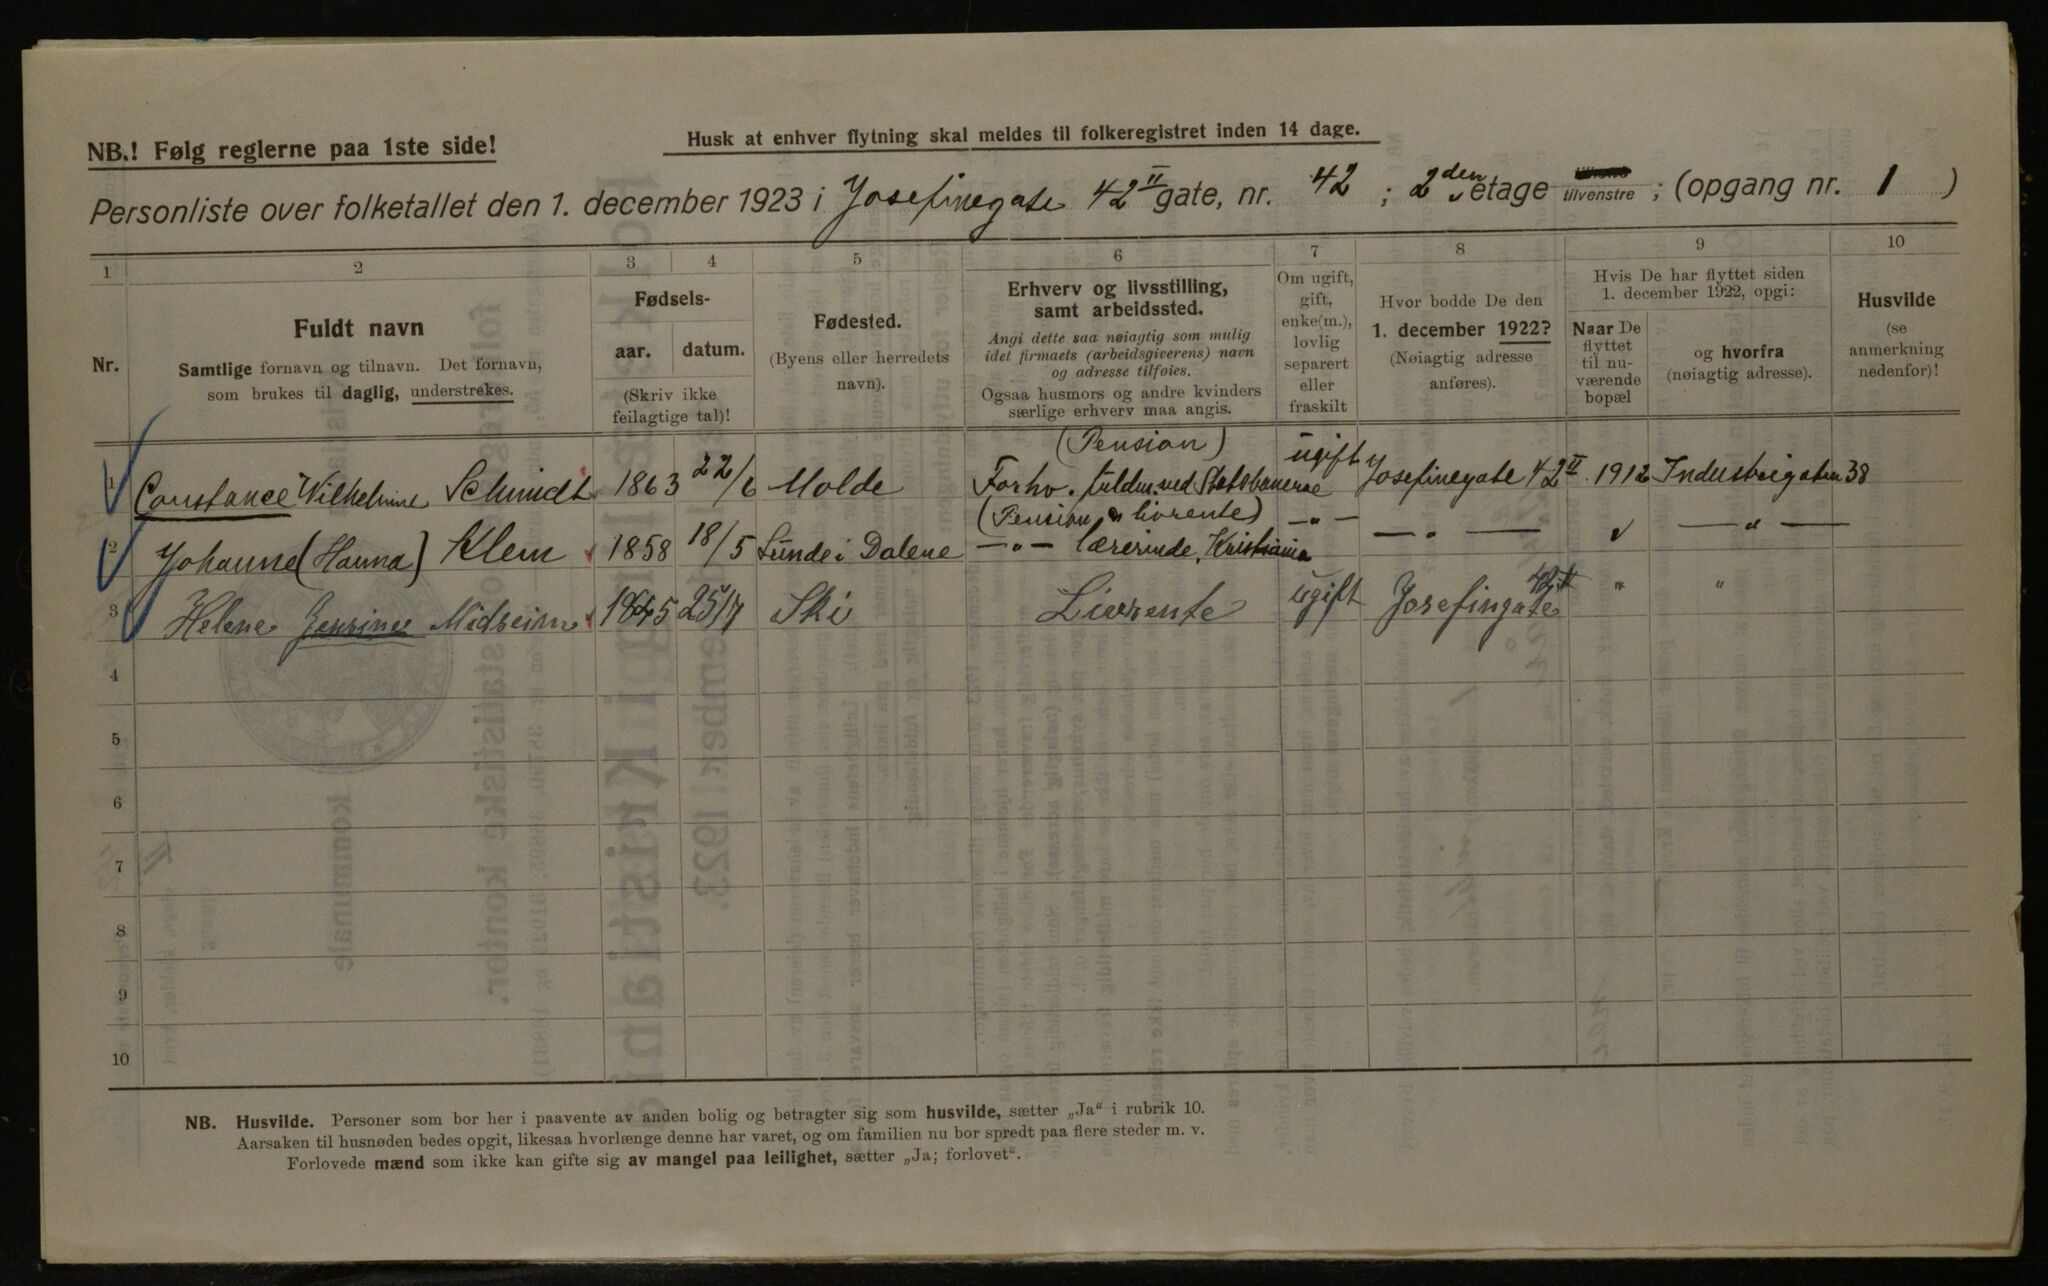 NB.! Følg reglerne paa 1ste side!
Husk at enhver flytning skal meldes til folkeregistret inden 14 dage.
Personliste over folketallet den 1. december 1923 i Josefinegate 42 II gate, nr. 42 ; 2den etage tilvenstre ; (opgang nr. 1 )
1 2 3 4 5 6 7 8 9 10
Nr.
Fuldt navn
Samtlige fornavn og tilnavn. Det fornavn,
som brukes til daglig, understrekes.
Fødsels-
aar. datum.
(Skriv ikke
feilagtige tal)!
Fødested.
(Byens eller herredets
navn).
Erhverv og livsstilling,
samt arbeidssted.
Angi dette saa nøiagtig som mulig
idet firmaets (arbeidsgiverens) navn
og adresse tilføies.
Ogsaa husmors og andre kvinders
særlige erhverv maa angis.
Om ugift,
gift,
enke(m.),
lovlig
separert
eller
fraskilt
Hvor bodde De den
1. december 1922?
(Nøiagtig adresse
anføres).
Hvis De har flyttet siden
1. december 1922, opgi:
Naar De
flyttet
til nu-
værende
bopæl
og hvorfra
(nøiagtig adresse).
Husvilde
(se
anmerkning
nedenfor)!
(Pension)
1 Constance Wilhelmine Schmidt 1863 22/6 Molde Forhv. fuldm. ved Statsbanerne ugift Josefinegate 42 II 1912 Industrigaten 38
(Pension & livrente)
2 Johanne (Hanna) Klem 1858 18/5 Lunde i Dalene —„— lærerinde, Kristiania —„— —„— „ —„—
3 Helene Jensine Midreim 1845 25/7 Ski Livrente ugift Josefingate 42 II „ „
4
5
6
7
8
9
10
NB. Husvilde. Personer som bor her i paavente av anden bolig og betragter sig som husvilde, sætter „Ja“ i rubrik 10.
Aarsaken til husnøden bedes opgit, likesaa hvorlænge denne har varet, og om familien nu bor spredt paa flere steder m. v.
Forlovede mænd som ikke kan gifte sig av mangel paa leilighet, sætter „Ja; forlovet“.